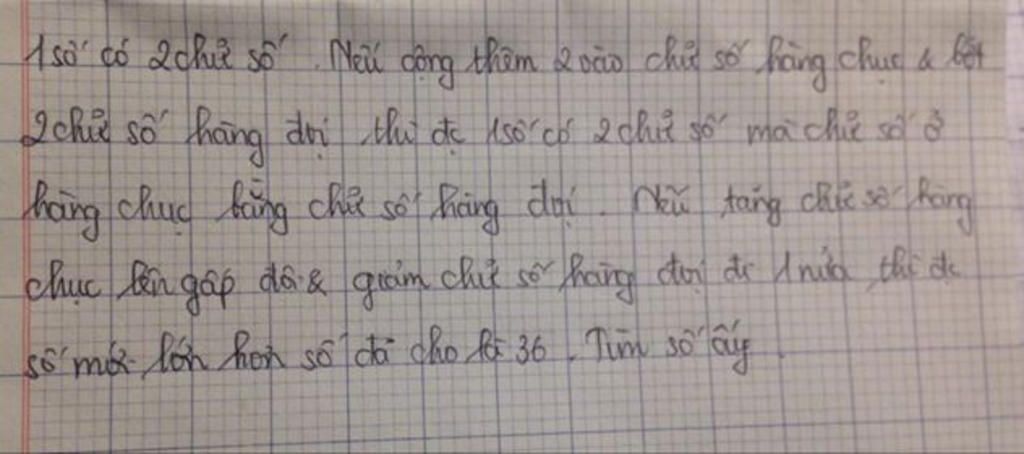 1 số có 2 chữ số. Nếu cộng thêm 2 vào chữ số hàng chục & bớt
2 chữ số hàng đvị thì đc 1 số có 2 chữ số mà chữ số ở
hàng chục bằng chữ số hàng đvị. Nếu tăng chữ số hàng
chục lên gấp đôi & giảm chữ số hàng đvị đi 1 nửa thì đc
số mới lớn hơn số đã cho là 36. Tìm số ấy.